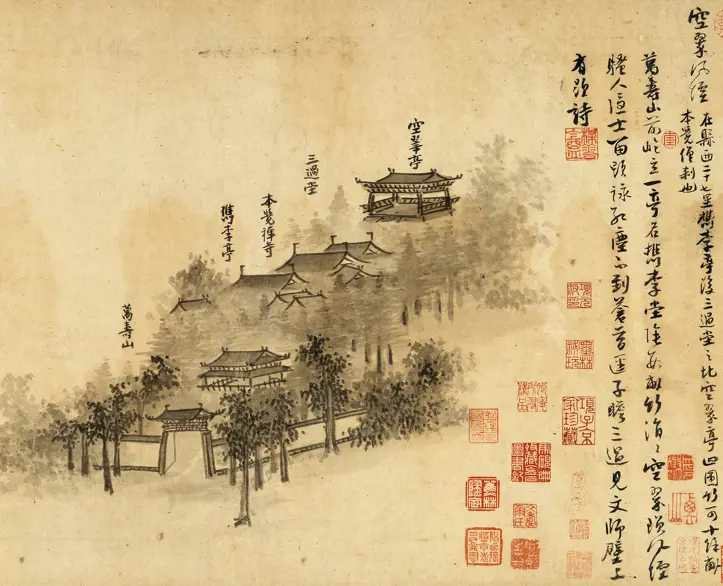 空翠風煙
在縣西二十七里檇李亭後三過堂之北空翠亭四圍竹可十餘畝
本覺僧剎也
萬壽山前屹立一亭名檇李堂陰數畝竹涓涓空翠鎖風煙
騷人隱士留題詠紅塵不到蒼苔徑子瞻三過見文師壁上
有題詩
空翠亭
三過堂
本覺禪寺
檇李亭
萬壽山